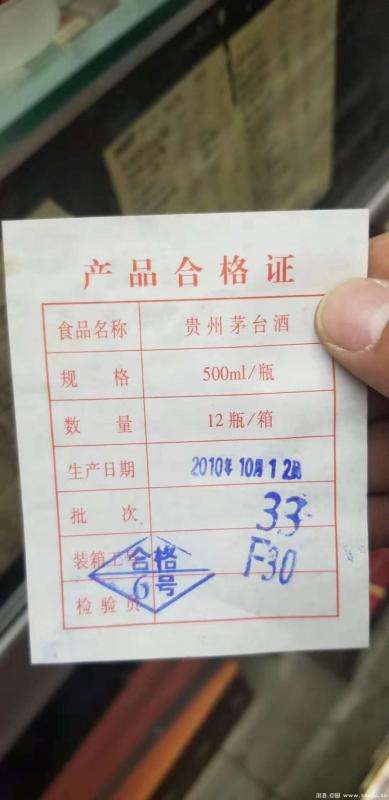 产品合格证
食品名称 贵州茅台酒
规格 500ml/瓶
数量 12瓶/箱
生产日期 2010年10月12日
批次 33
装箱工 F30
合格
6号
检验员